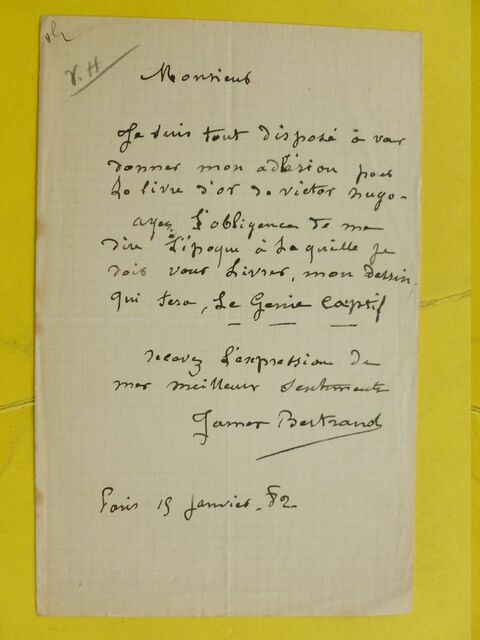 V. H
Monsieur
Je suis tout disposé à vous
donner mon adhésion pour
Le livre d'or de victor hugo-
ayez L'obligence de me
dire L'époque à Laquelle je
dois vous Livrer, mon dessin,
qui sera, Le Genie Captif
recevez L'expression de
mes meilleur sentiments
James Bertrand
Paris 15 janvier. 82